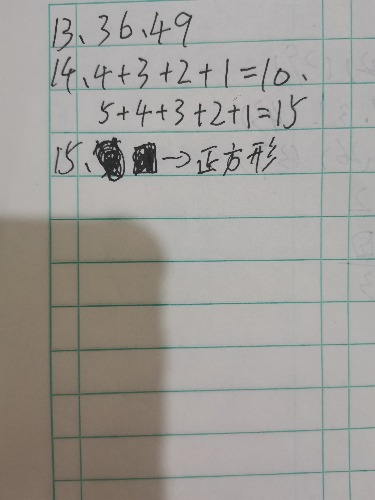 13、36、49
14、4+3+2+1=10、
5+4+3+2+1=15
15、■→正方形